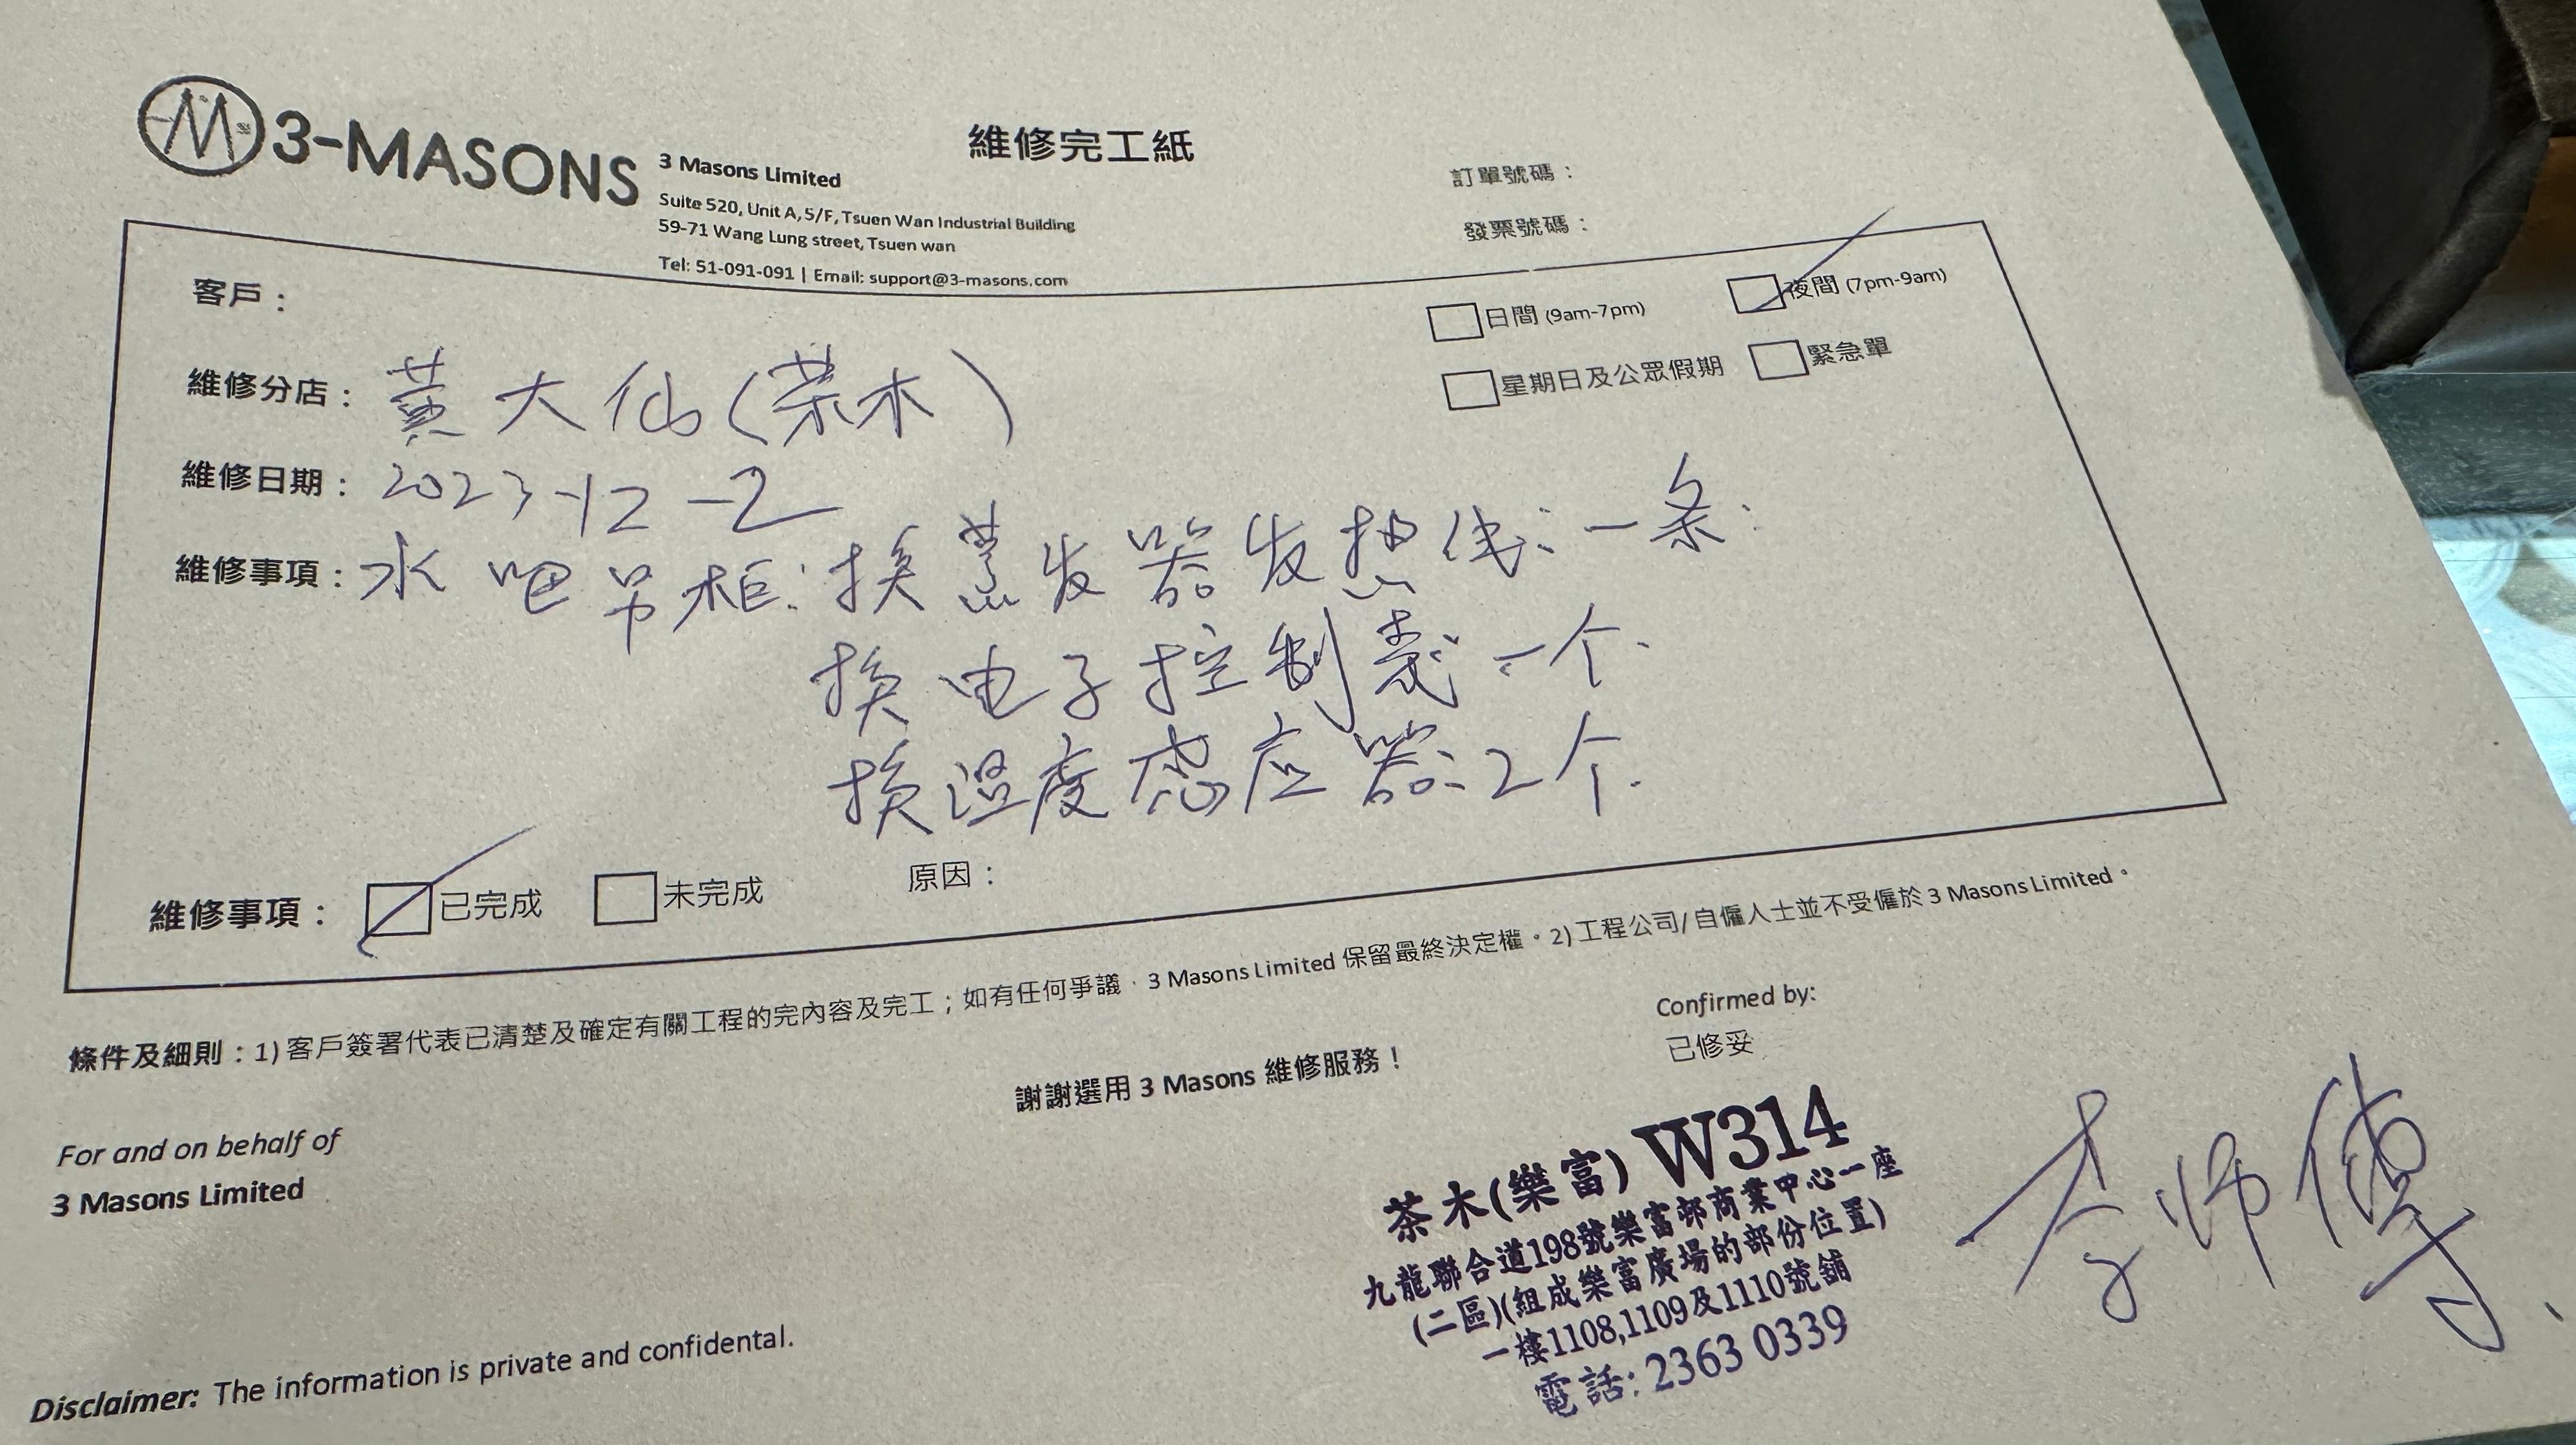 3-MASONS
維修完工紙
3 Masons Limited
Suite 520, Unit A, 5/F, Tsuen Wan Industrial Building
59-71 Wang Lung street, Tsuen wan
Tel: 51-091-091 | Email: support@3-masons.com
訂單號碼：
發票號碼：
客戶：
日間 (9am-7pm) 夜間 (7pm-9am)
星期日及公眾假期 緊急單
維修分店：黃大仙(茶木)
維修日期：2023-12-2
維修事項：水吧吊柜：换蒸发器发热线：一条.
换电子控制表一个.
换温度感应器：2个.
維修事項： 已完成 未完成 原因：
條件及細則：1) 客戶簽署代表已清楚及確定有關工程的完內容及完工；如有任何爭議，3 Masons Limited 保留最終決定權。2) 工程公司/自僱人士並不受僱於 3 Masons Limited。
謝謝選用 3 Masons 維修服務！
Confirmed by:
已修妥
For and on behalf of
3 Masons Limited
茶木(樂富) W314
九龍聯合道198號樂富邨商業中心一座
(二區)(組成樂富廣場的部份位置)
一樓1108,1109及1110號舖
電話: 2363 0339
李师傅
Disclaimer: The information is private and confidental.